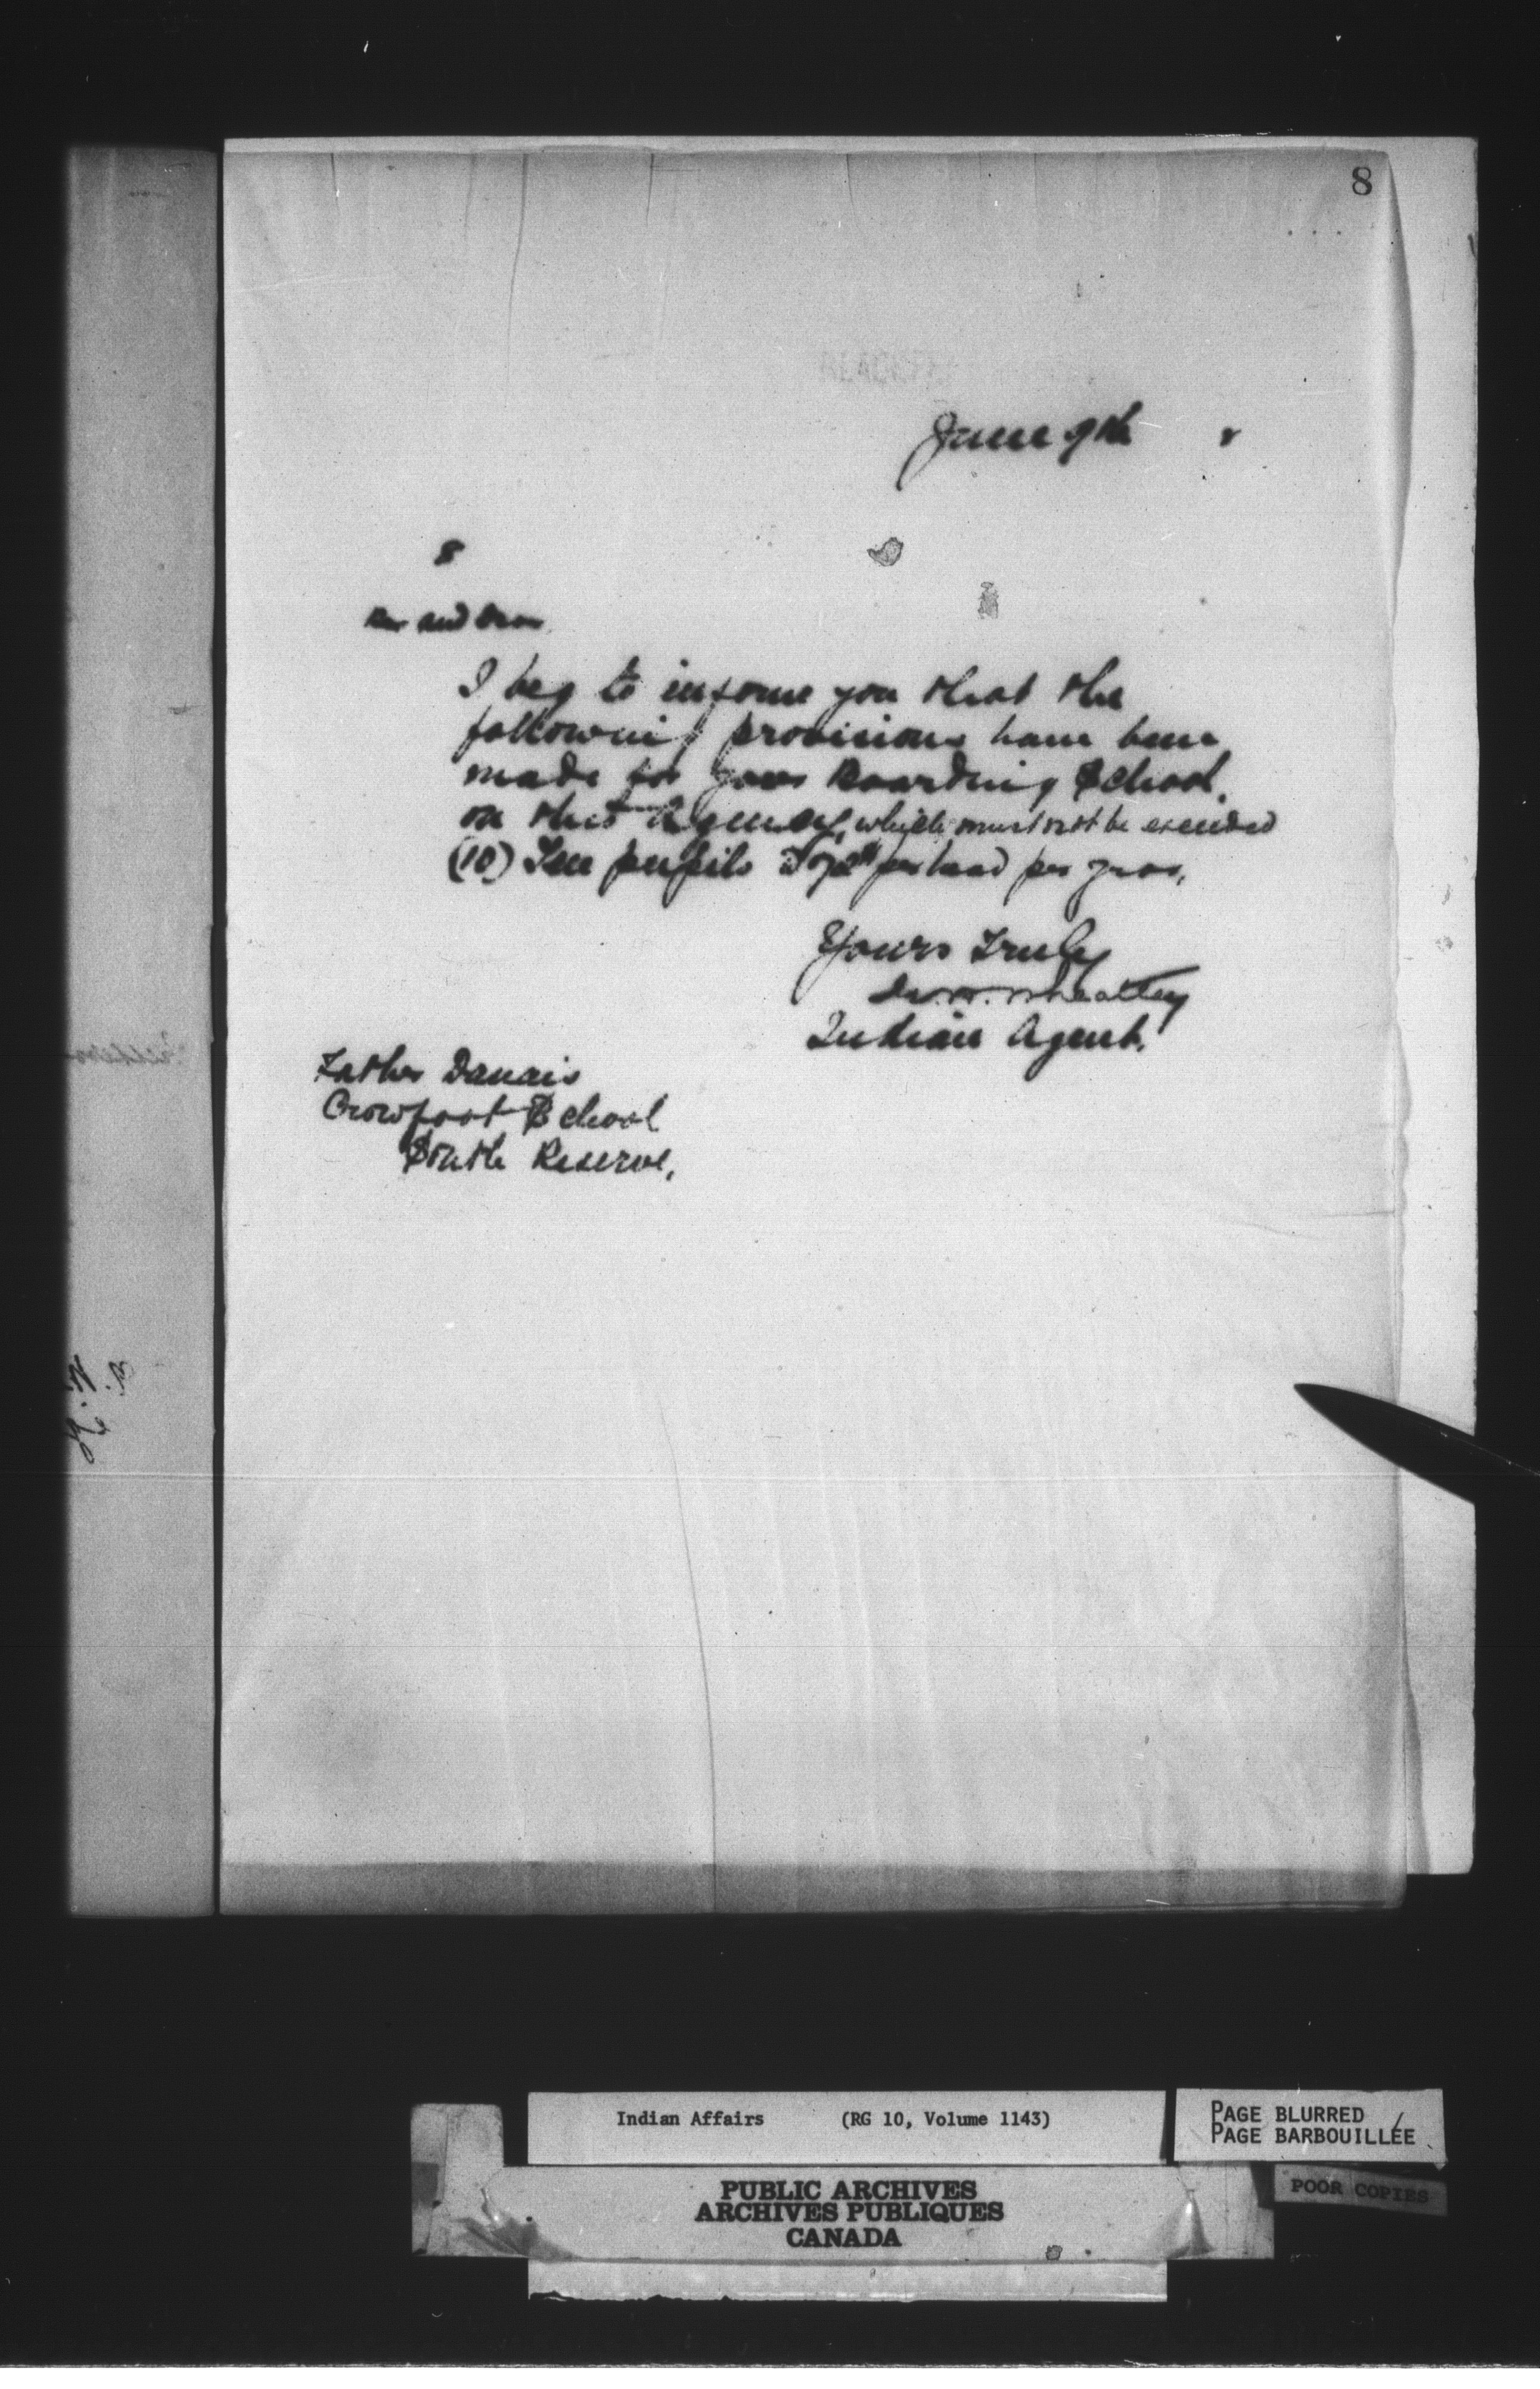 8
June 9th
8
Rev and Dear
I beg to inform you that the
following provisions have been
made for your Boarding School.
on this Agency, which must not be exceeded
(10) Ten pupils @ 72 per head per year.
Yours Truly
Wheatley
Indian Agent.
Father Danais
Crowfoot School
South Reserve,
Indian Affairs (RG 10, Volume 1143)
PAGE BLURRED
PAGE BARBOUILLÉE
POOR COPIES
PUBLIC ARCHIVES
ARCHIVES PUBLIQUES
CANADA